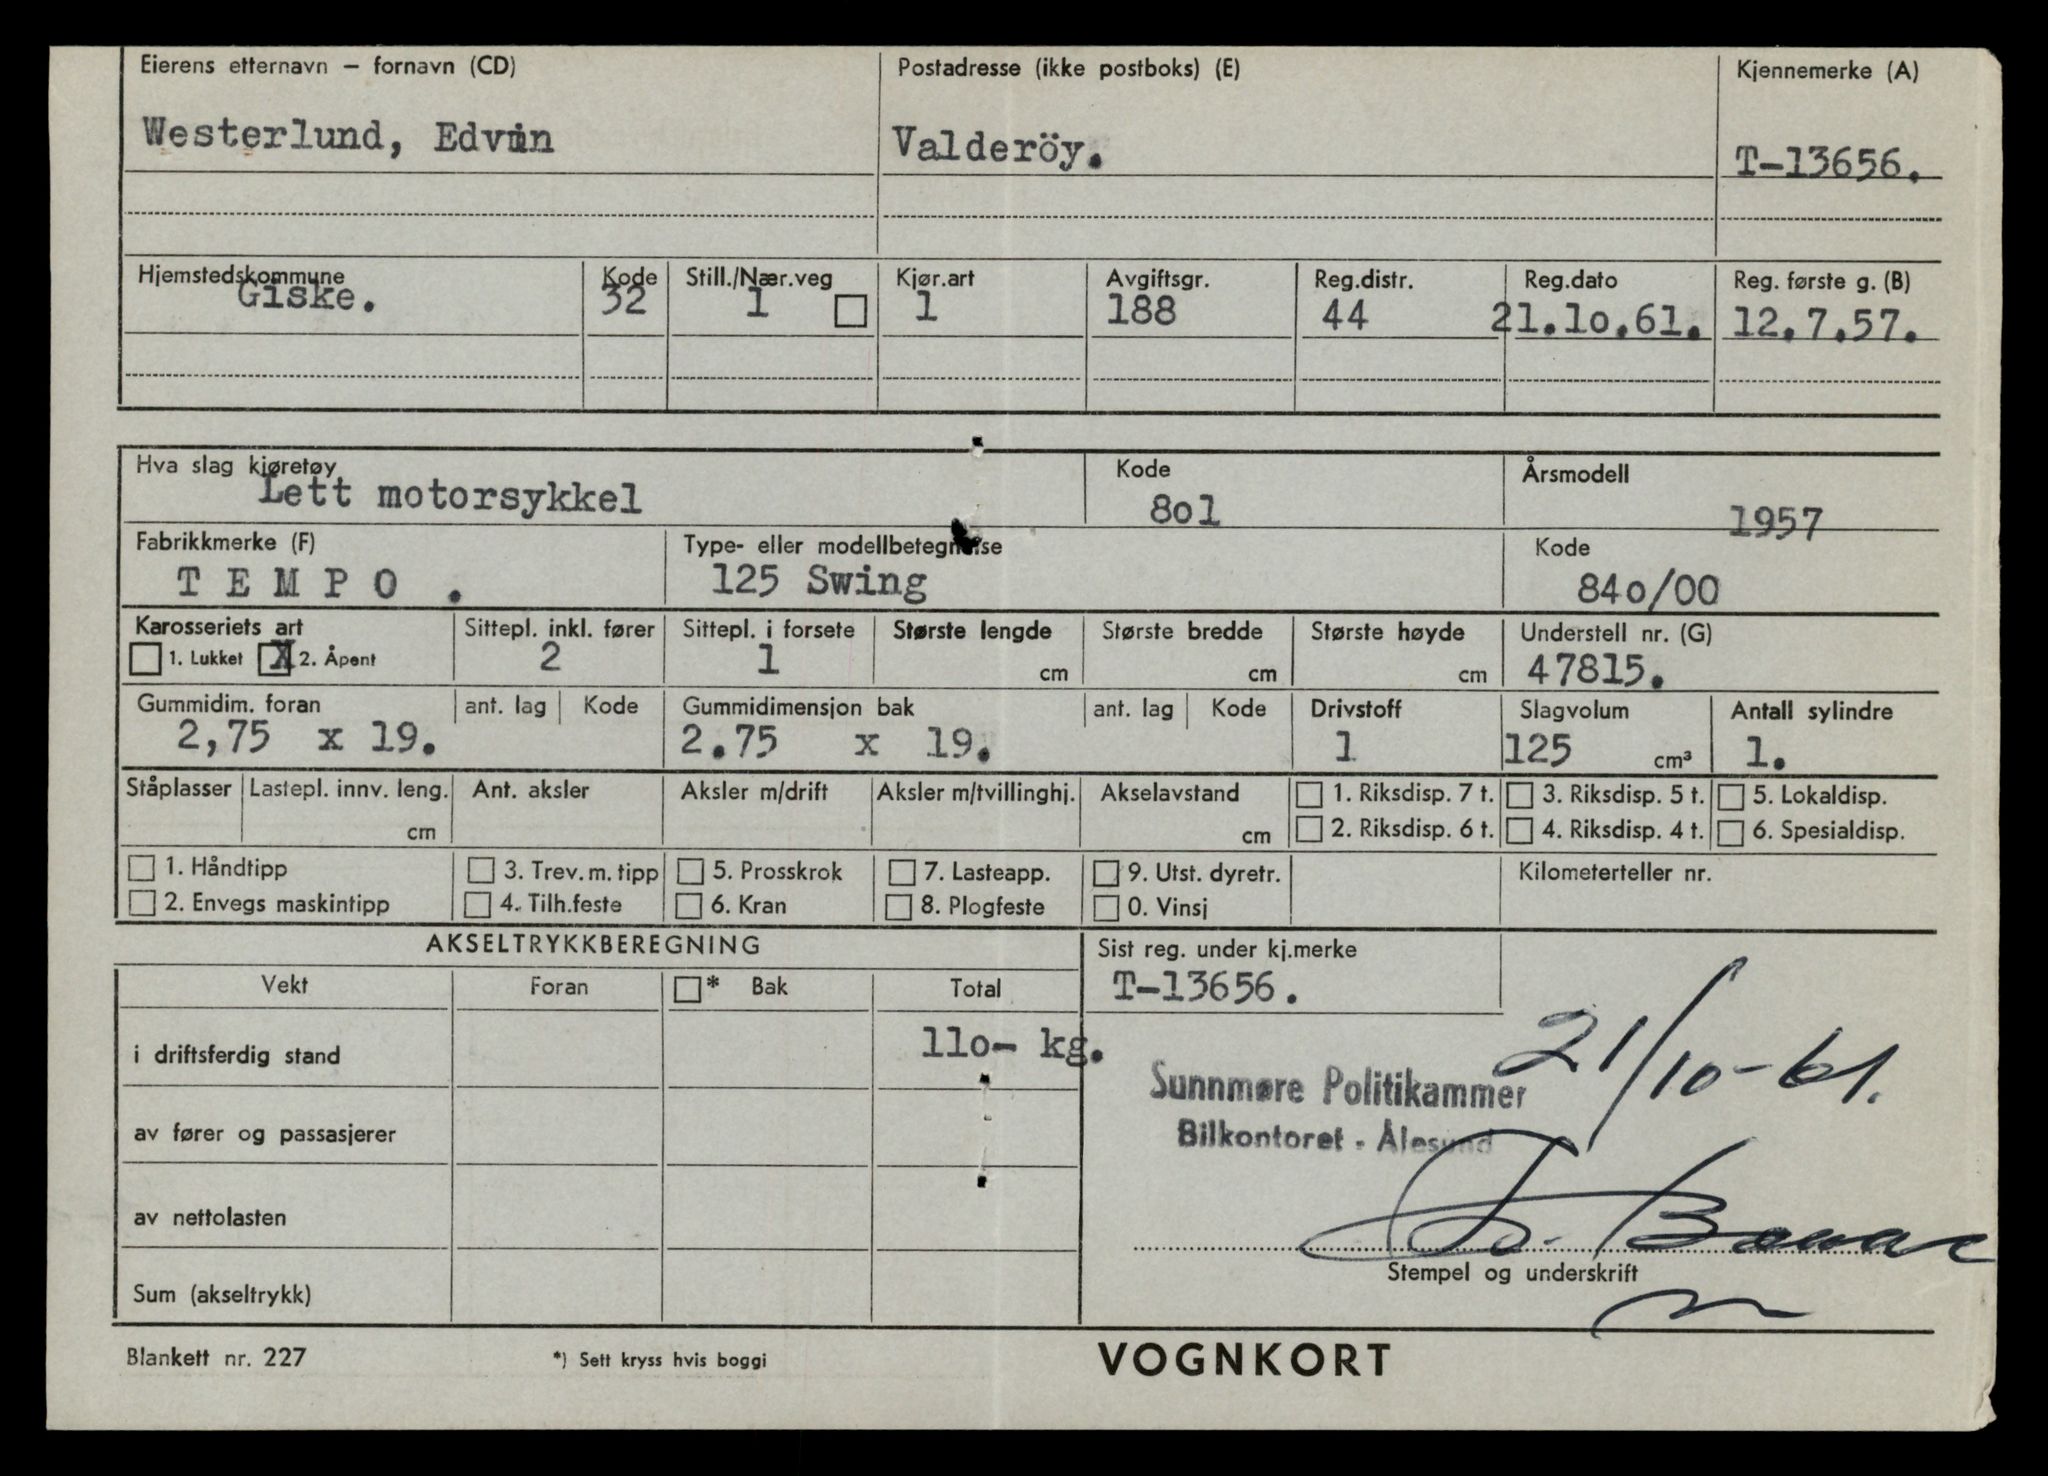 Eierens etternavn – fornavn (CD) Postadresse (ikke postboks) (E) Kjennemerke (A)
Westerlund, Edvin Valderöy. T-13656.
Hjemstedskommune Kode Still./Nær.veg Kjør.art Avgiftsgr. Reg.distr. Reg.dato Reg. første g. (B)
Giske. 32 1 1 188 44 21.10.61. 12.7.57.
Hva slag kjøretøy Kode Årsmodell
Lett motorsykkel 801 1957
Fabrikkmerke (F) Type- eller modellbetegnelse Kode
TEMPO . 125 Swing 840/00
Karosseriets art Sittepl. inkl. fører Sittepl. i forsete Største lengde Største bredde Største høyde Understell nr. (G)
1. Lukket X 2. Åpent 2 1 cm cm cm 47815.
Gummidim. foran ant. lag Kode Gummidimensjon bak ant. lag Kode Drivstoff Slagvolum Antall sylindre
2,75 x 19. 2.75 x 19. 1 125 cm³ 1.
Ståplasser Lastepl. innv. leng. Ant. aksler Aksler m/drift Aksler m/tvillinghj. Akselavstand 1. Riksdisp. 7 t. 3. Riksdisp. 5 t. 5. Lokaldisp.
cm cm 2. Riksdisp. 6 t. 4. Riksdisp. 4 t. 6. Spesialdisp.
1. Håndtipp 3. Trev. m. tipp 5. Prosskrok 7. Lasteapp. 9. Utst. dyretr. Kilometerteller nr.
2. Envegs maskintipp 4. Tilh.feste 6. Kran 8. Plogfeste 0. Vinsj
AKSELTRYKKBEREGNING Sist reg. under kj.merke
Vekt Foran * Bak Total T-13656.
i driftsferdig stand 110- kg.
21/10-61.
Sunnmøre Politikammer
Bilkontoret - Ålesund
av fører og passasjerer
av nettolasten
Stempel og underskrift
Sum (akseltrykk)
Blankett nr. 227 *) Sett kryss hvis boggi VOGNKORT